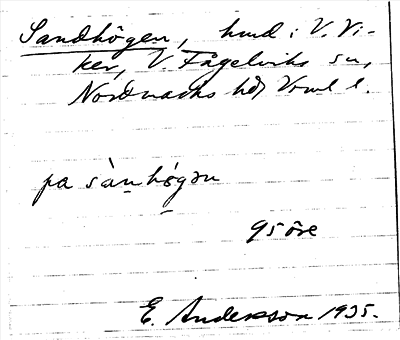 Sandhögen, hmd i V. Vi-
ker, V. Fågelviks sn,
Nordmarks hd, Vrml l.
pa sànhǿgǝn
95 öre
E. Anderson 1935.